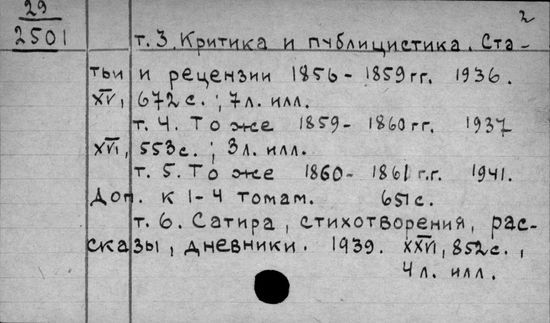 29
2
2501
т. 3. Критика и публицистика. Ста-
тьи и рецензии 1856 - 1859 гг. 1936.
XV, 672 с.; 7 л. илл.
т. 4. То же 1859 - 1860 гг. 1937
XVI, 553 с.; 3 л. илл.
т. 5. То же 1860 - 1861 г.г. 1941.
Доп. к 1-4 томам. 651 с.
т. 6. Сатира, стихотворения, рас-
сказы, дневники. 1939. XXVI, 852 с.,
4 л. илл.